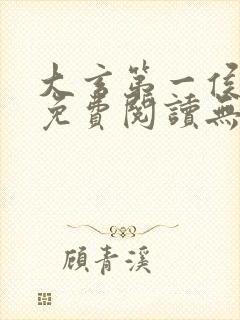 大言第一侯
免費閱讀無
顧青溪